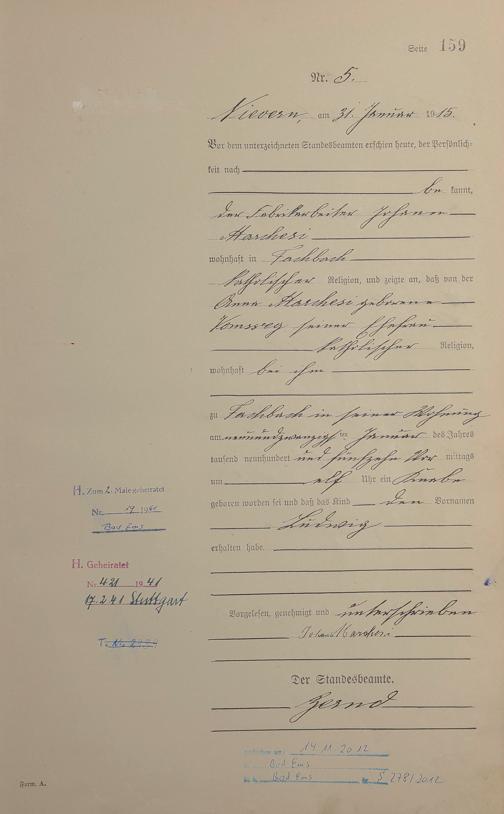 Seite 159
Nr. 5.
Nievern, am 31. Januar 1915.
Vor dem unterzeichneten Standesbeamten erschien heute, der Persönlich-
keit nach
be kannt,
der Fabrikarbeiter Johann
Marchesi
wohnhaft in Fachbach
katholischer Religion, und zeigte an, daß von der
Anna Marchesi geborene
seiner Ehefrau
katholischer Religion,
wohnhaft bei ihm
zu Fachbach in seiner Wohnung
am neunundzwanzigsten Januar des Jahres
tausend neunhundert und fünfzehn Vor mittags
um elf Uhr ein Knabe
geboren worden sei und daß das Kind den Vornamen
Ludwig
erhalten habe.
Vorgelesen, genehmigt und unterschrieben
Johann Marchesi
Der Standesbeamte.
H. Zum 2. Male geheiratet
Nr.
Bad Ems
H. Geheiratet
Nr. 421 1941
17.2.41 Stuttgart
14.11.2012
Bad Ems
Bad Ems S 278/2012
Form. A.